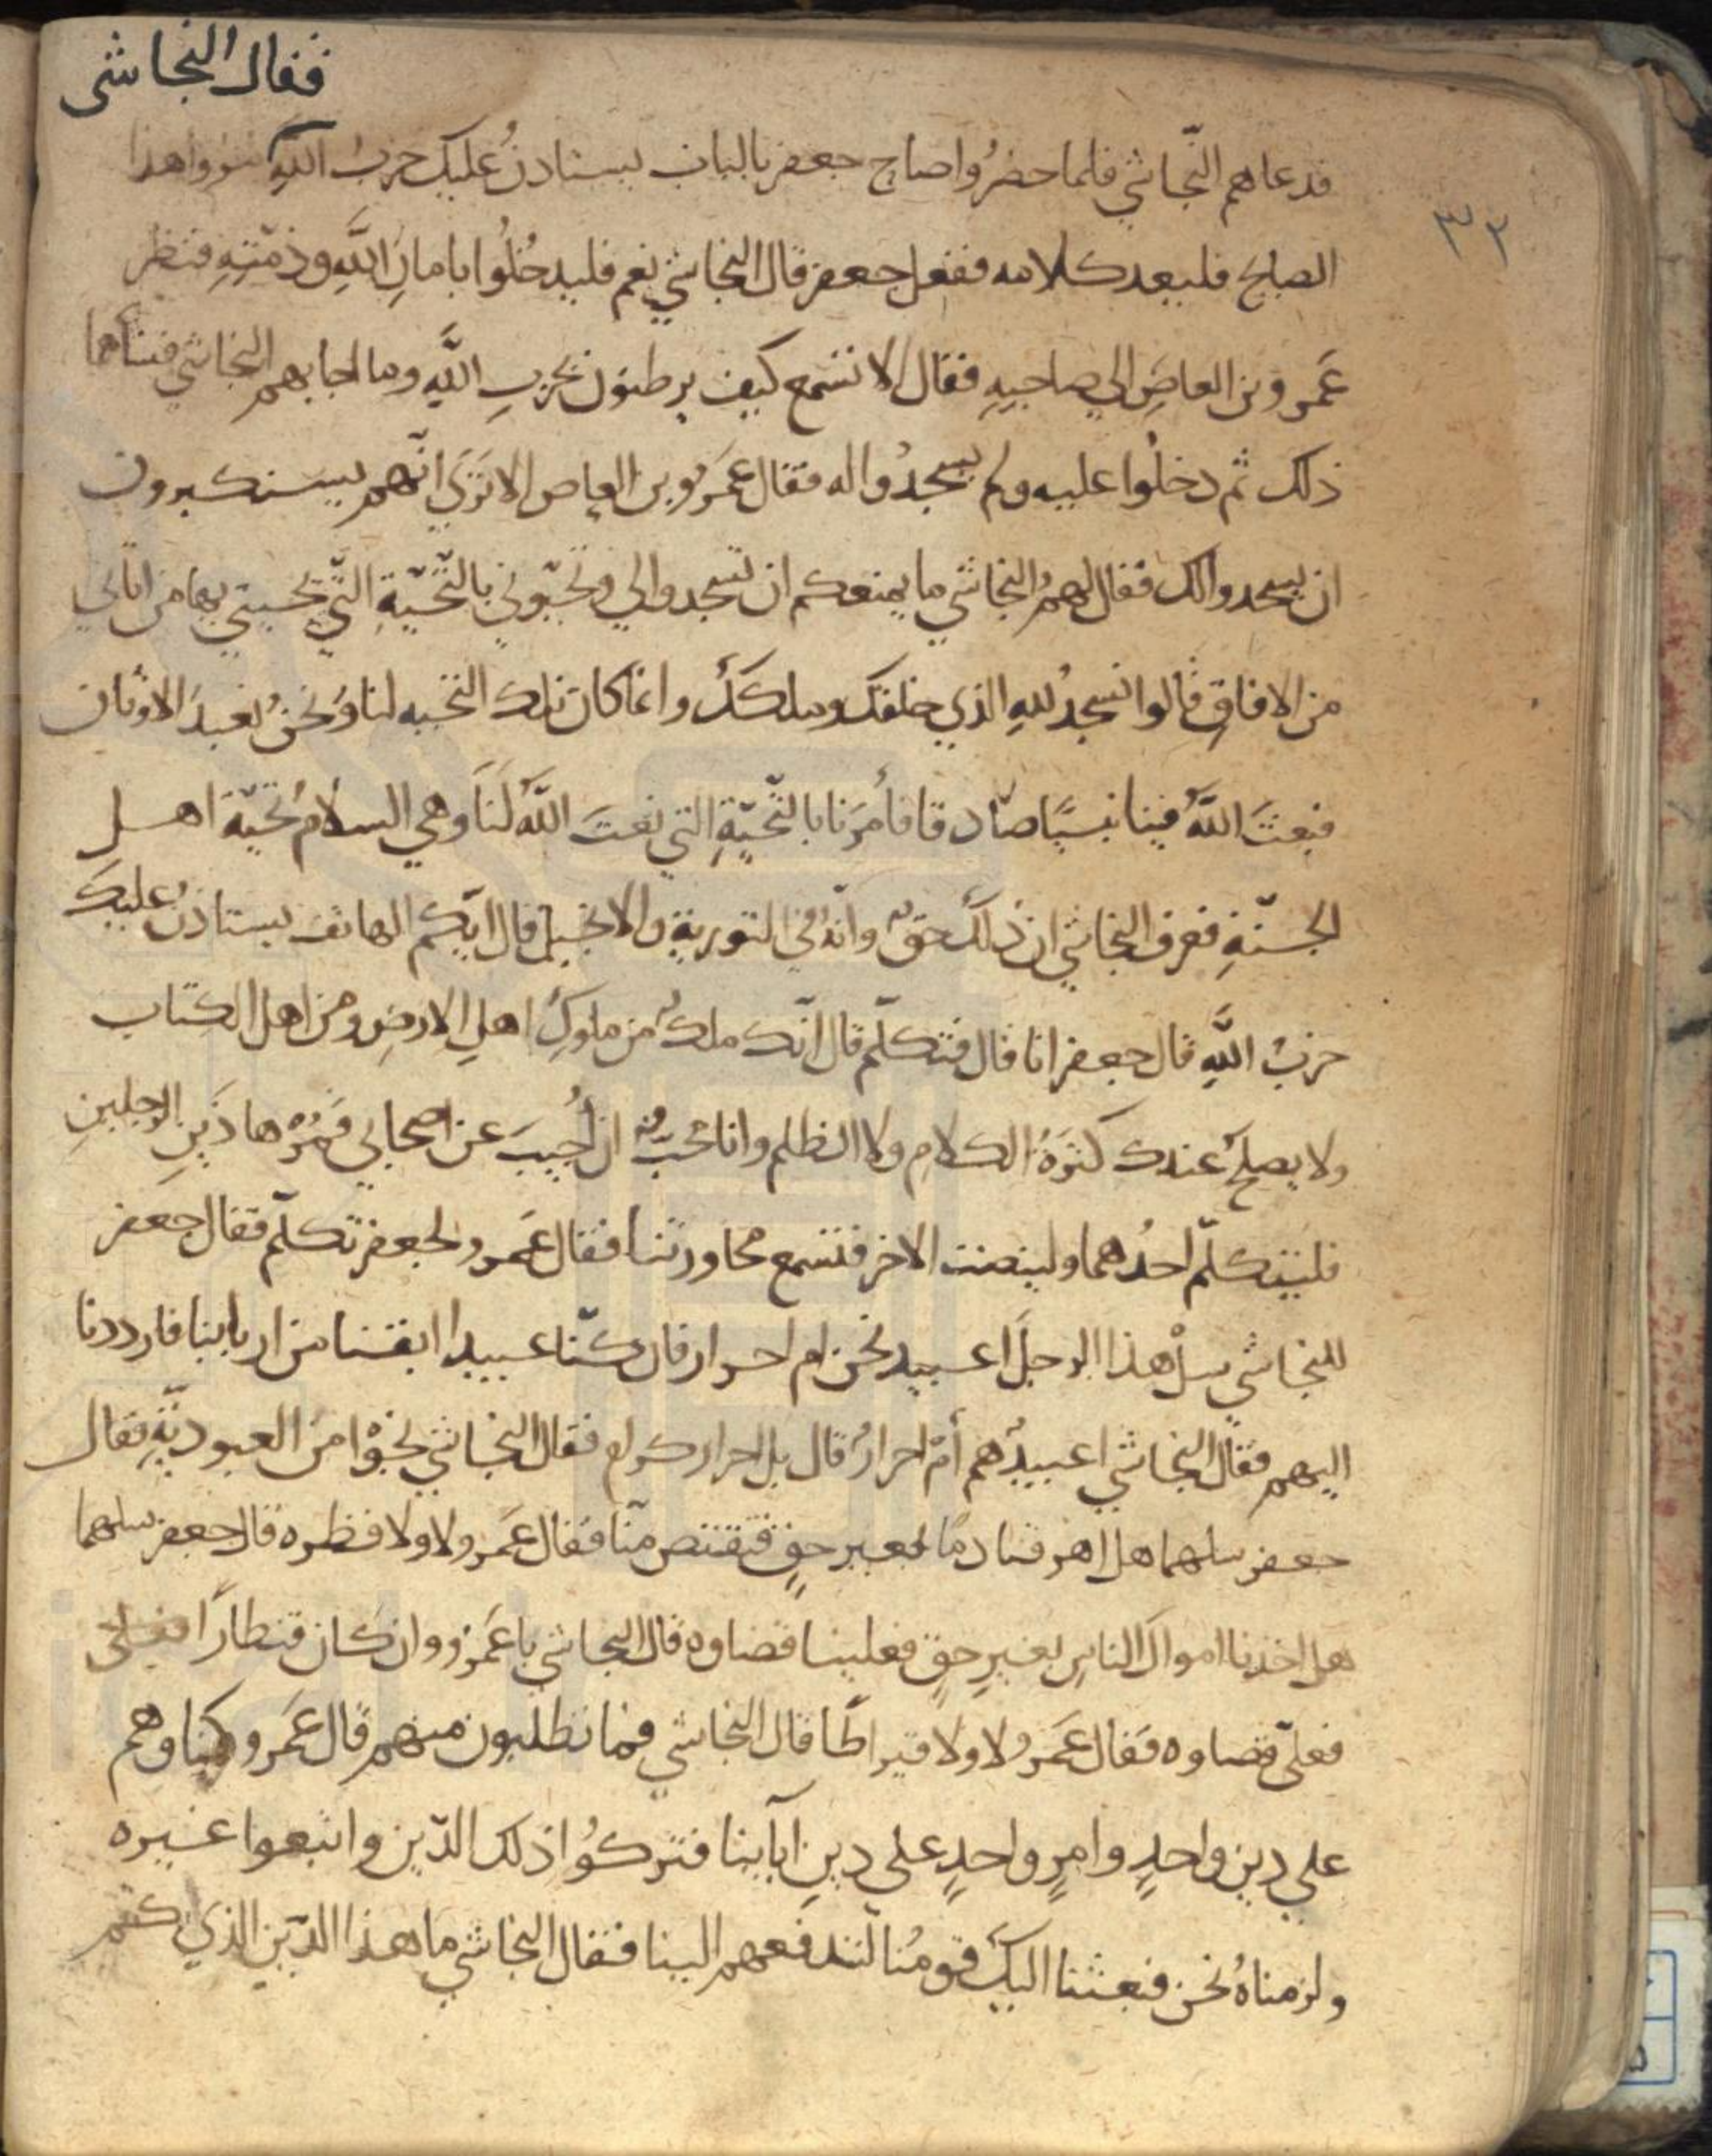 فقال النجاشى
فدعاهم النّجاشي فلما حضرُوا صاح جعفر بالباب يستاذنُ عليك حزبُ اللهِ مروا هذا
٣٢
الصايح فليعد كلامه ففعل جعفر قال النجاشي نعم فليدخُلُوا بامانِ اللَّهِ وذمّتِهِ فنظر
عَمرو بن العاصِ الي صاحبِهِ فقال الا تسمع كيف يرطنون بحزبِ اللَّهِ وما اجابهم النجاشي فساهما
ذلك ثم دخلُوا عليه ولم يسجدُوا له فقال عَمَرو بن العاص الا تَرَيَ انّهم يستكبرون
ان يسجدوا لك فقال لهمُ النجاشي ما يمنعكم ان تسجدوا لي وتحيّوني بالتّحيّةِ الّتي يحييني بها من اتاني
من الافاقِ قالوا نسجدُ للهِ الذي خلقك وملككَ وانما كان تلك التحيه لنا ونحنُ نعبدَ الاوثان
فبعثَ اللَّهُ فينا نبيًا صّادقا فأمرَنا بالتّحيّةِ التي نعتَ اللَّهُ لنَا وهي السلامُ تحيّة اهل
الجنّةِ فعرف النجاشي ان ذلكَ حقٌ وانّهُ في التورية والانجيل قال ايّكم الهاتف يستاذنُ عليكَ
حزبُ اللَّهِ قال جعفر انا قال فتكلّم قال انّك ملكٌ من ملوكِ اهلِ الارضِ ومن اهل الكتاب
ولا يصلحُ عندك كثرَةُ الكلامِ ولا الظلم وانا محبٌ ان اُجيبَ عن اصحابي فَمُرْ هاذَينِ الرجلينِ
فليتكلّم احدُهما ولينصت الاخر فتسمع محاورتنا فقال عَمرو لجعفر تكلّم فقال جعفر
للنجاشي سلْ هذا الرجلَ اعبيد نحن ام احرار فان كنّا عبيدا ابقنا من اربابنا فارددنا
اليهم فقال النجاشي اعبيدٌ هم أم احرارٌ قال بل احرار كرام فقال النجاشي نجَوْا من العبوديّةِ فقال
جعفر سلهما هل اهرقنا دمًا بغير حقٍ فتقتص منّا فقال عَمرو لا ولا قطره قال جعفر سلهما
هل اخذنا اموالَ الناسِ بغيرِ حقٍ فعلينا قضاوه قال النجاشي يا عَمرو وان كان قنطارًا
فعليّ قضاوه فقال عَمرو لا ولا قيراطًا قال النجاشي فما تطلبون منهم قال عَمرو كنا وهم
علي دينٍ واحدٍ وامرٍ واحدٍ علي دينِ ابآينا فتركُوا ذلك الدّين واتبعوا غيره
ولزمناهُ نحن فبعثنا اليكَ قومُنا لتدفعهم الينا فقال النجاشي ما هذا الدّين الذي كنتم